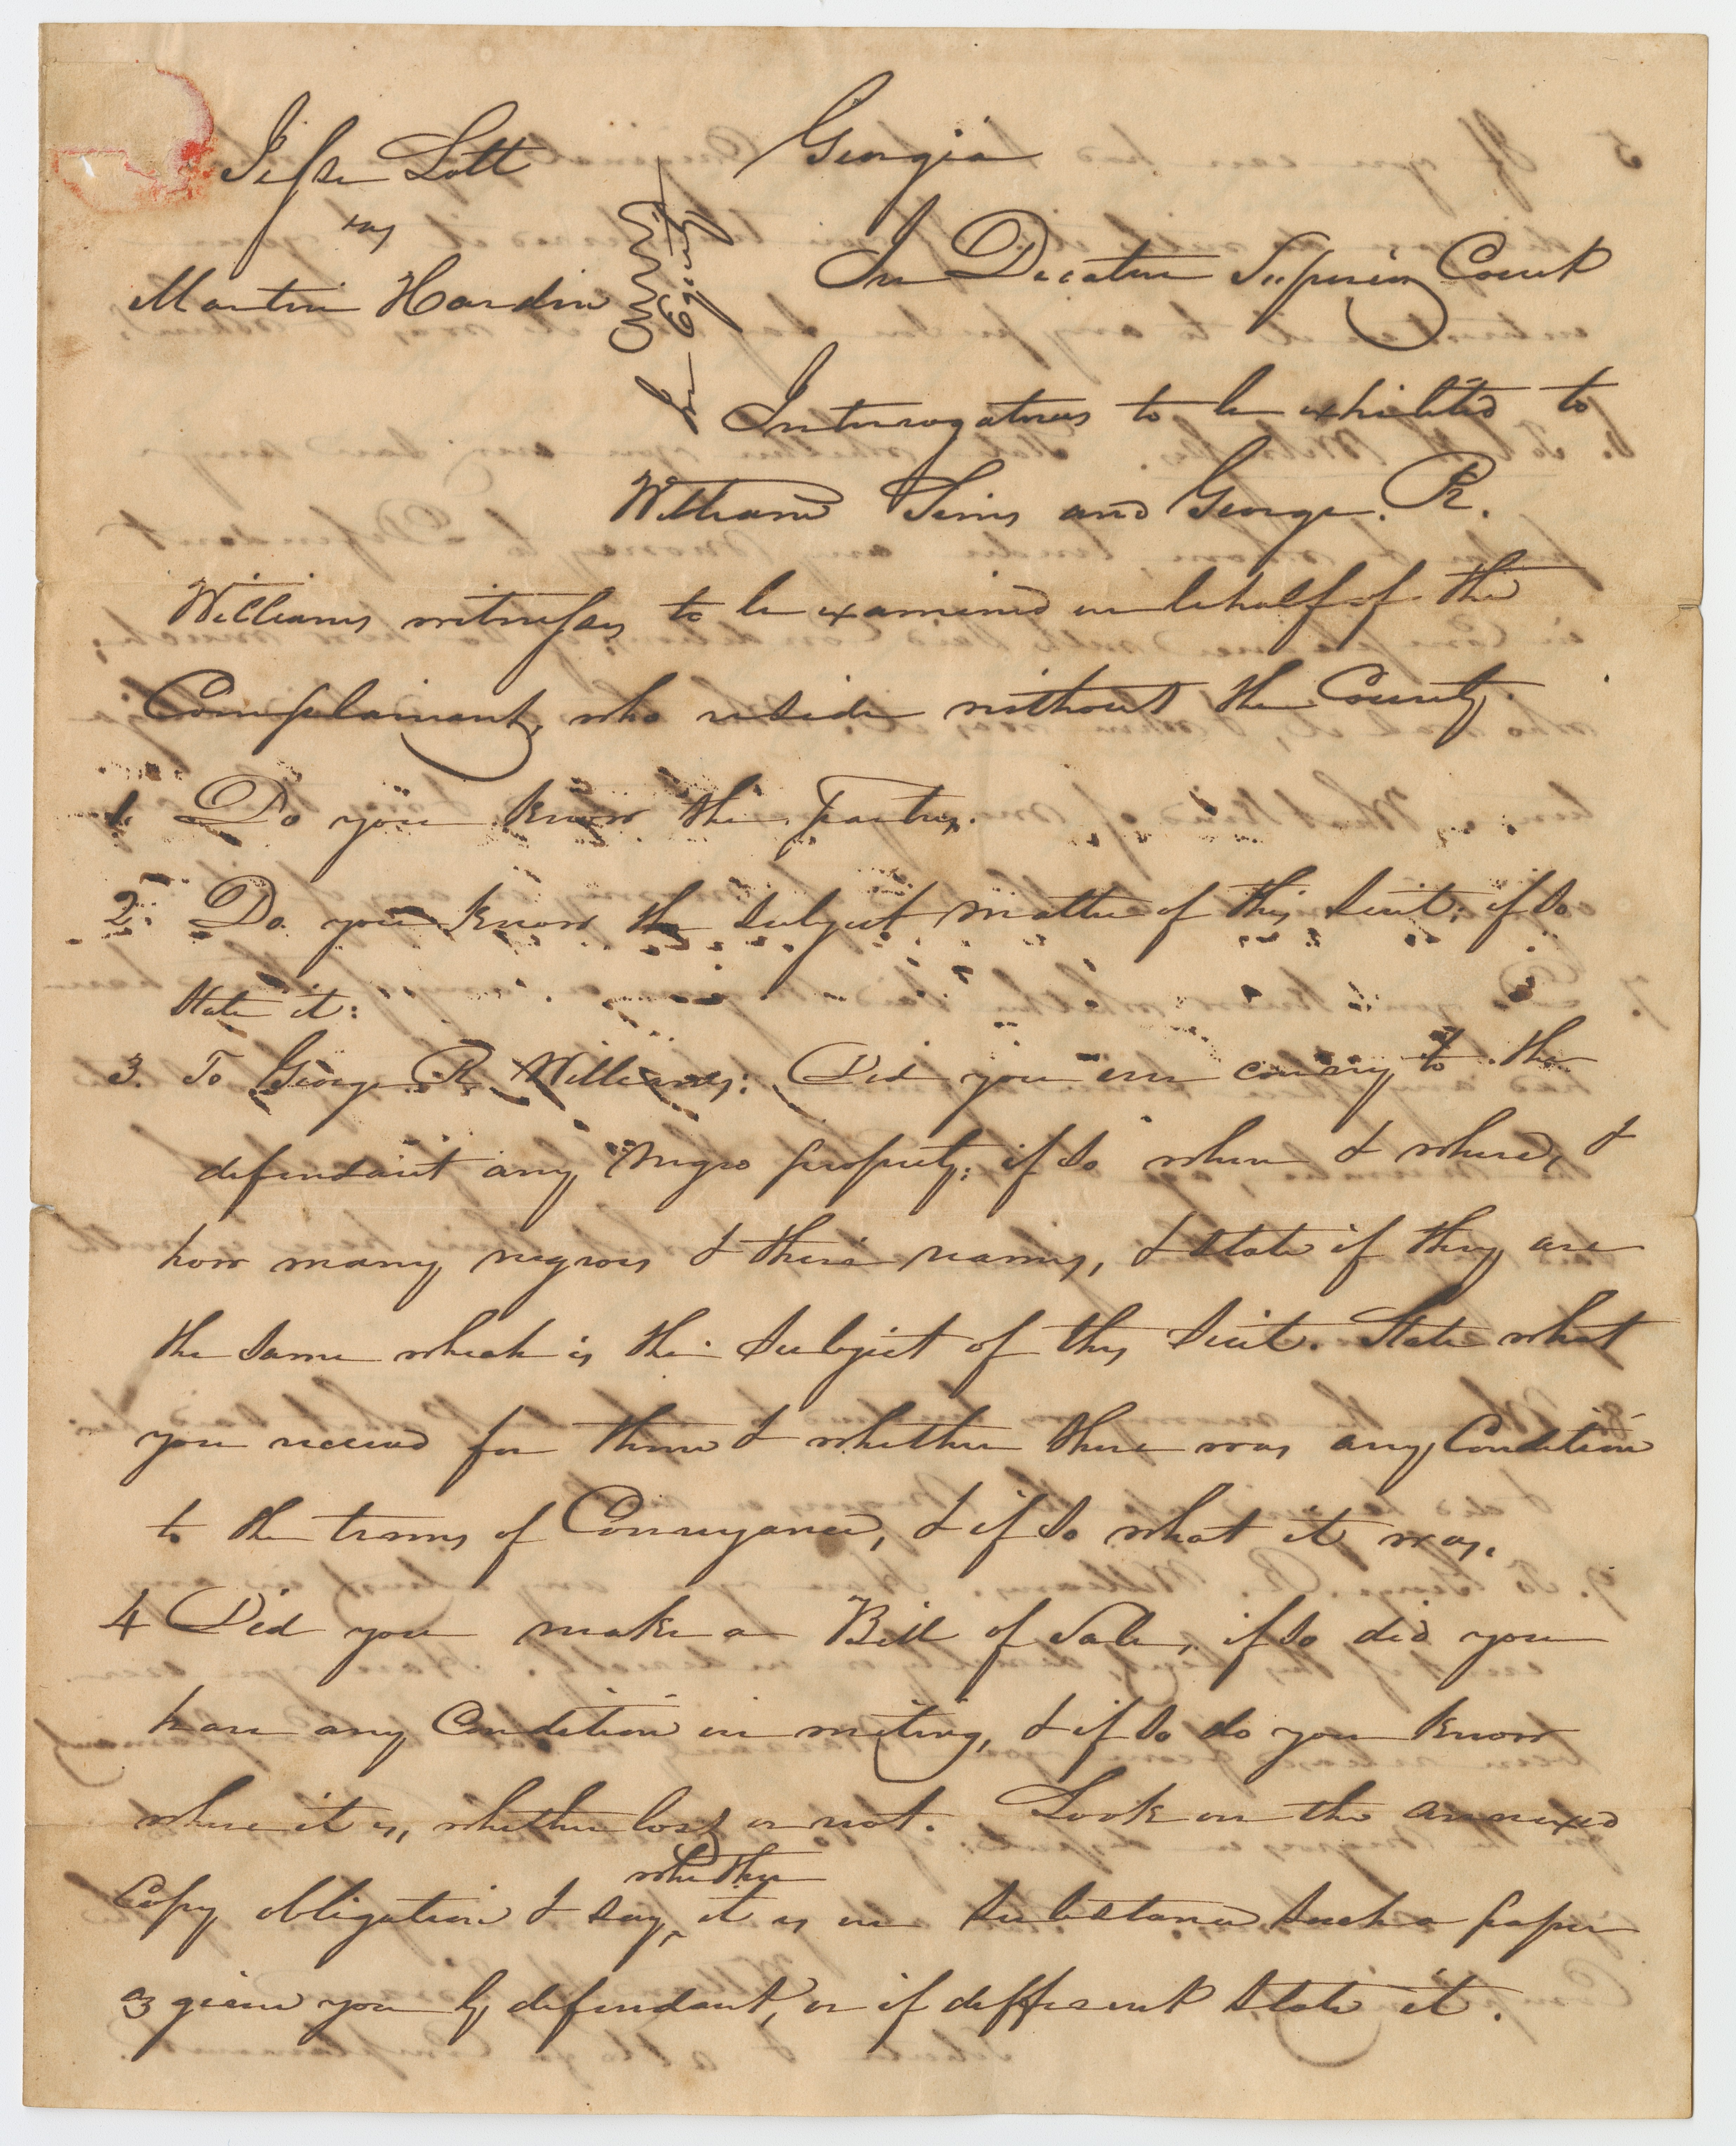 Jesse Lott
vs
Martin Hardin
In Equity
Georgia
In Decatur Superior Court
Interrogatories to be exhibited to
William Sims and George. R.
Williams witnesses to be examined on behalf of the
Complainant, who reside without the County.
1. Do you know the Parties.
2. Do you know the subject matter of this suit; if so
state it:
3. To George R. Williams: Did you ever convey to the
defendant any Negro property: if so when & where, &
how many negroes & their names, & state if they are
the same which is the subject of this suit. State what
you received for them & whether there was any Condition
to the terms of Conveyance, & if so what it was.
4 Did you make a Bill of Sale, if so did you
have any Condition in writing, & if so do you know
where it is, whether lost or not. Look on the annexed
whether
Copy obligation & say, it is in substance such a paper
as given you by defendant, or if different state it.